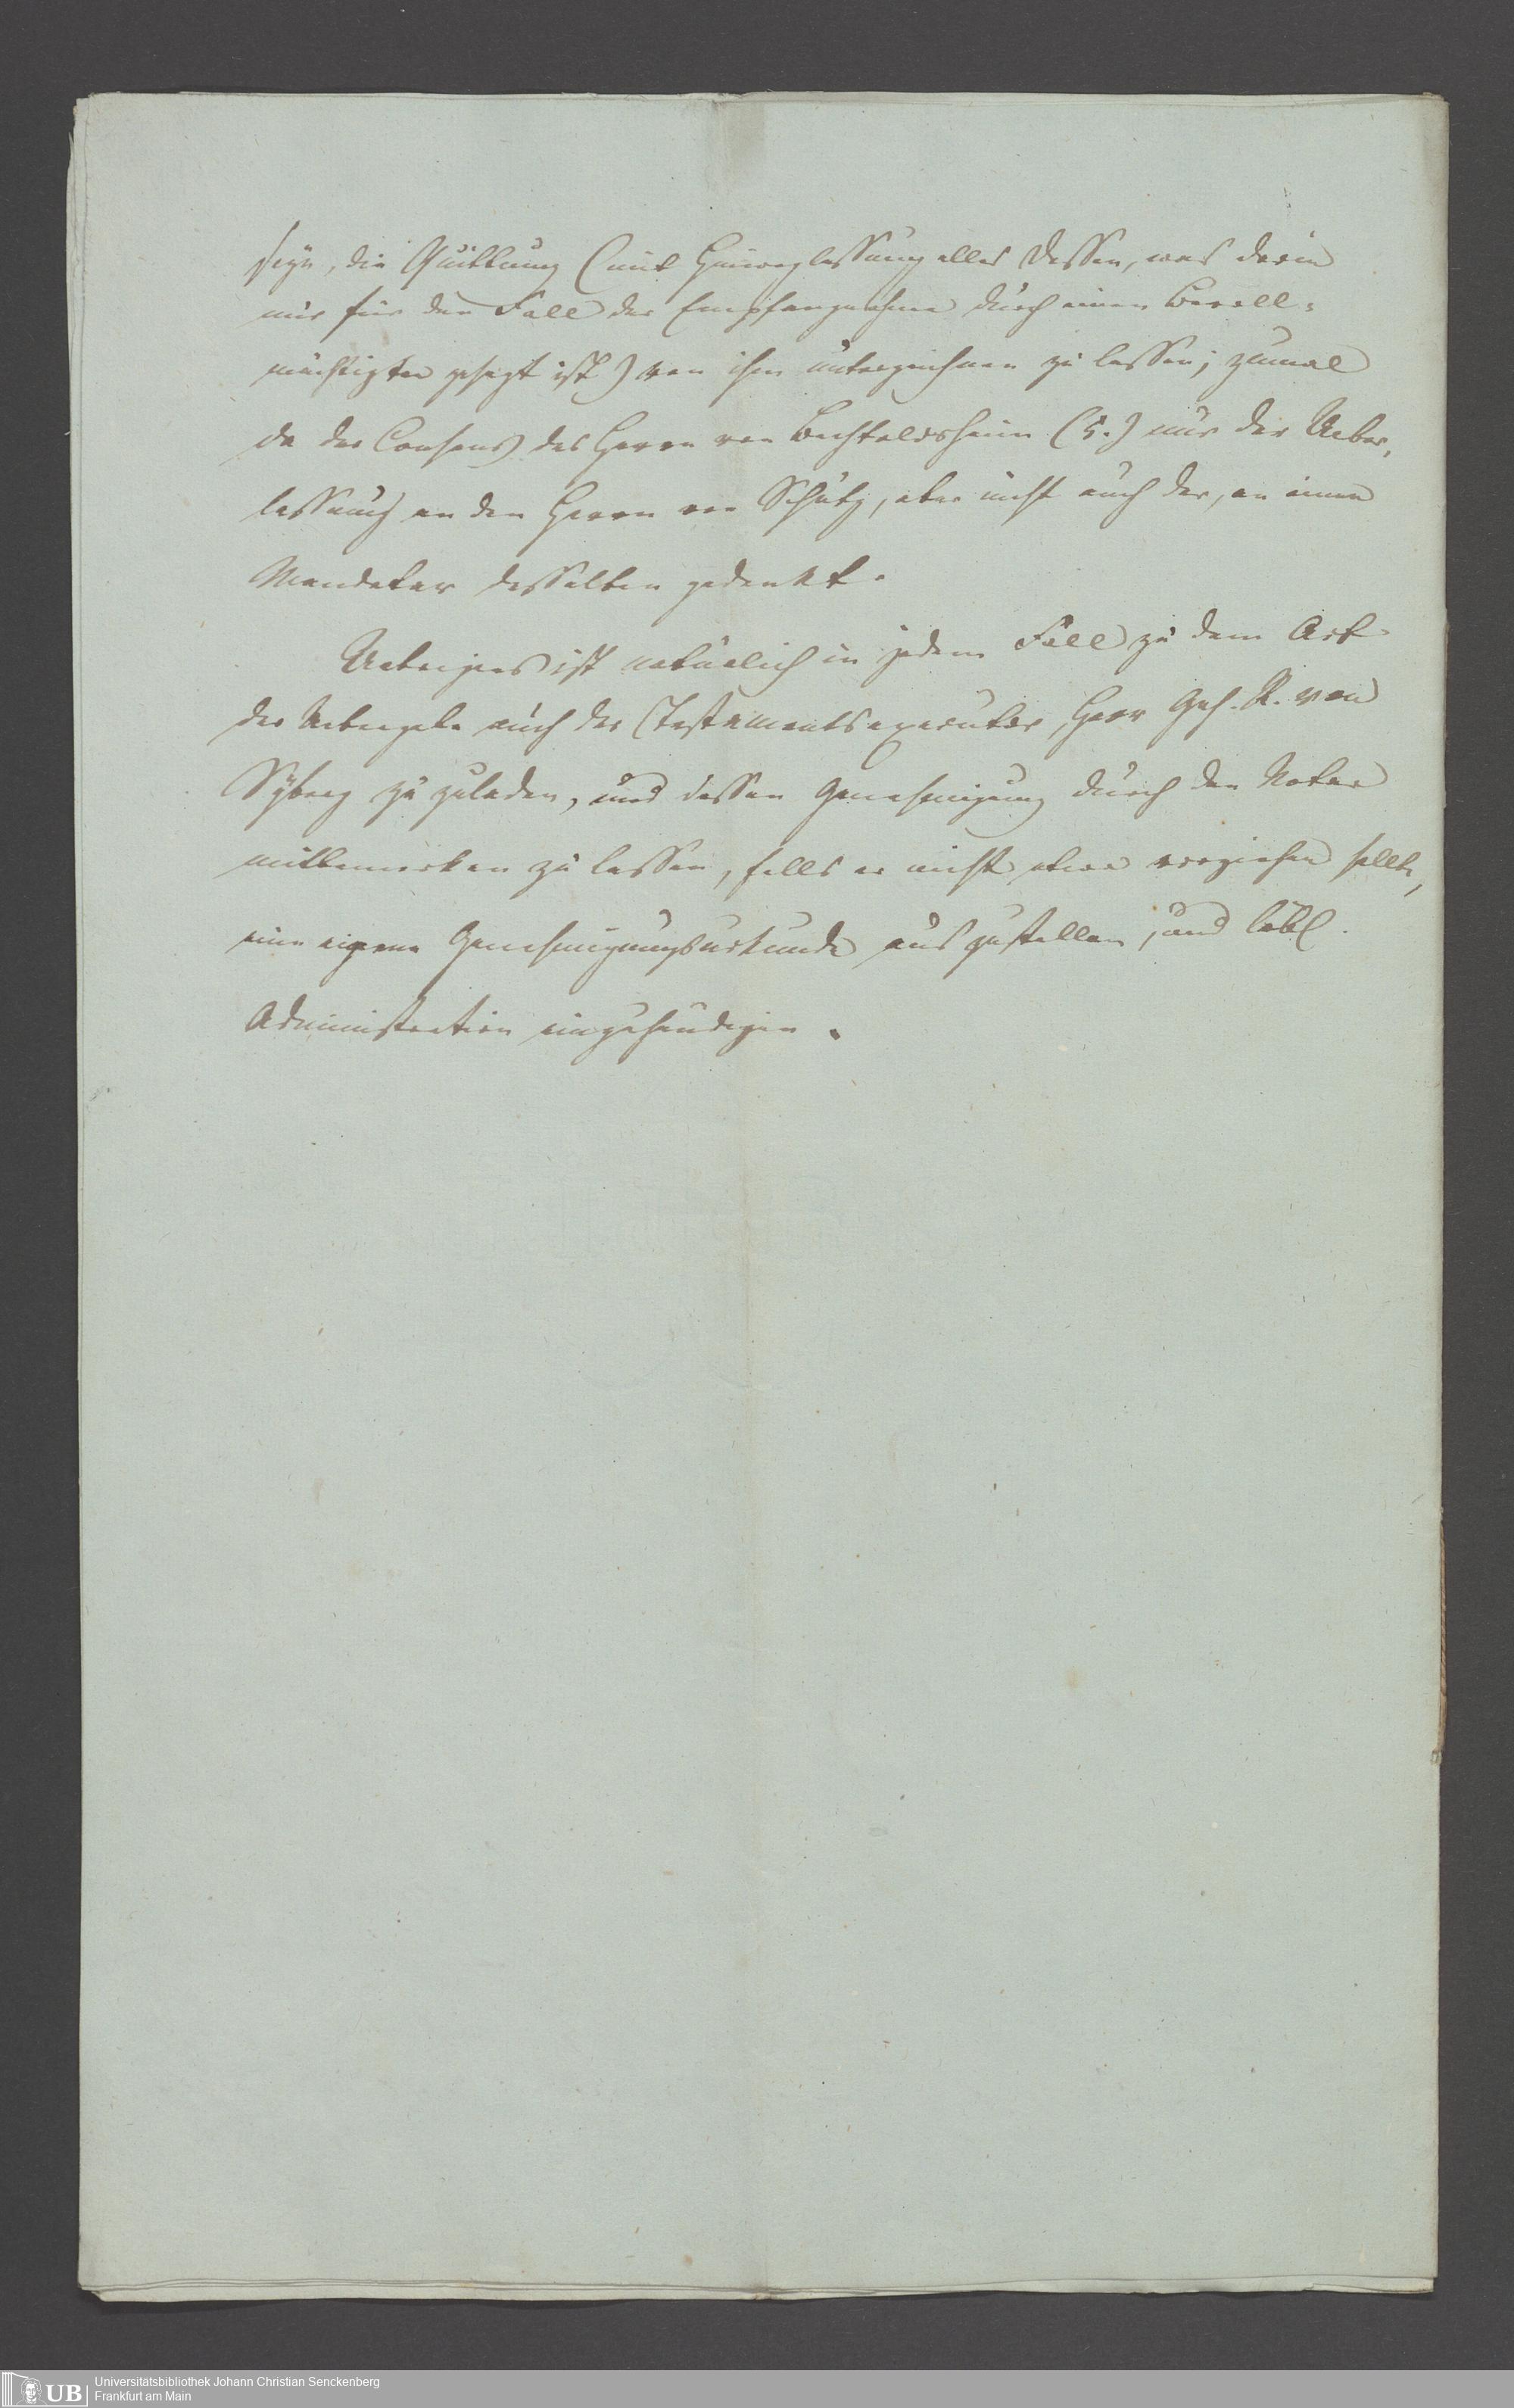 seyn, die Quittung (mit Hinweglassung alles dessen, was darin
nur für den Fall der Empfangnahme durch einen Bevoll-
mächtigten gesagt ist) von ihm unterzeichnen zu lassen; zumal
da der Consens des Herrn von Bechtoldsheim (5.) nur der Ueber-
lassung an den Herrn von Schütz, aber nicht auch der, an einen
Mandatar desselben gedenkt.
Uebrigens ist natürlich in jedem Fall zu dem Act
der Uebergabe auch der Testamentsexecutor, Herr Geh. R. von
Syberg zuzuladen, und dessen Genehmigung durch den Notar
mitbemerken zu lassen, falls er nicht etwa vorziehen sollte,
eine eigene Genehmigungsurkunde auszustellen, und löbl.
Administration einzuhändigen.
UB
Universitätsbibliothek Johann Christian Senckenberg
Frankfurt am Main